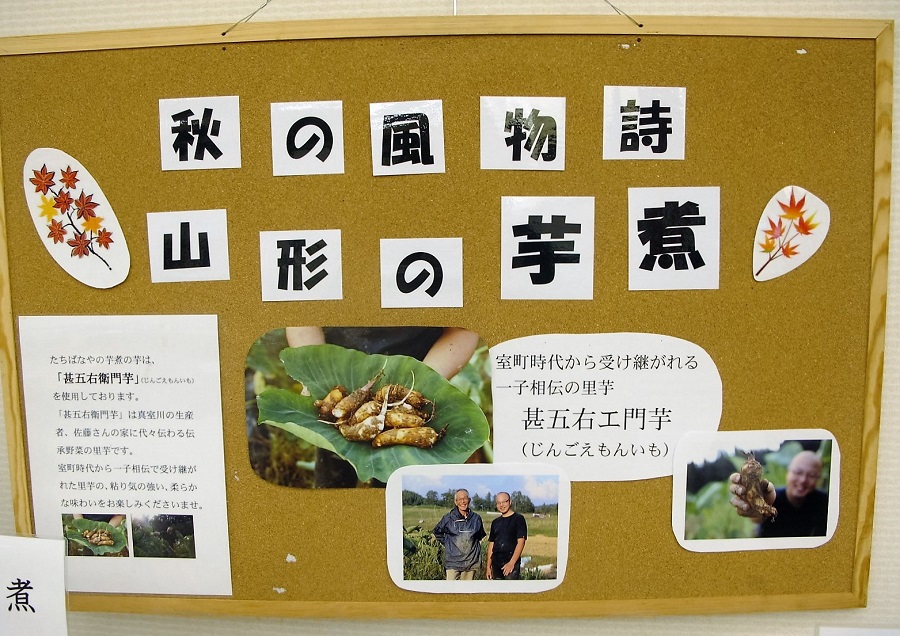 秋の風物詩
山形の芋煮
たちばなやの芋煮の芋は、
「甚五右衛門芋」(じんごえもんいも)
を使用しております。
「甚五右衛門芋」は真室川の生産
者、佐藤さんの家に代々伝わる伝
承野菜の里芋です。
室町時代から一子相伝で受け継が
れた里芋の、粘り気の強い、柔らか
な味わいをお楽しみくださいませ。
室町時代から受け継がれる
一子相伝の里芋
甚五右エ門芋
(じんごえもんいも)
煮